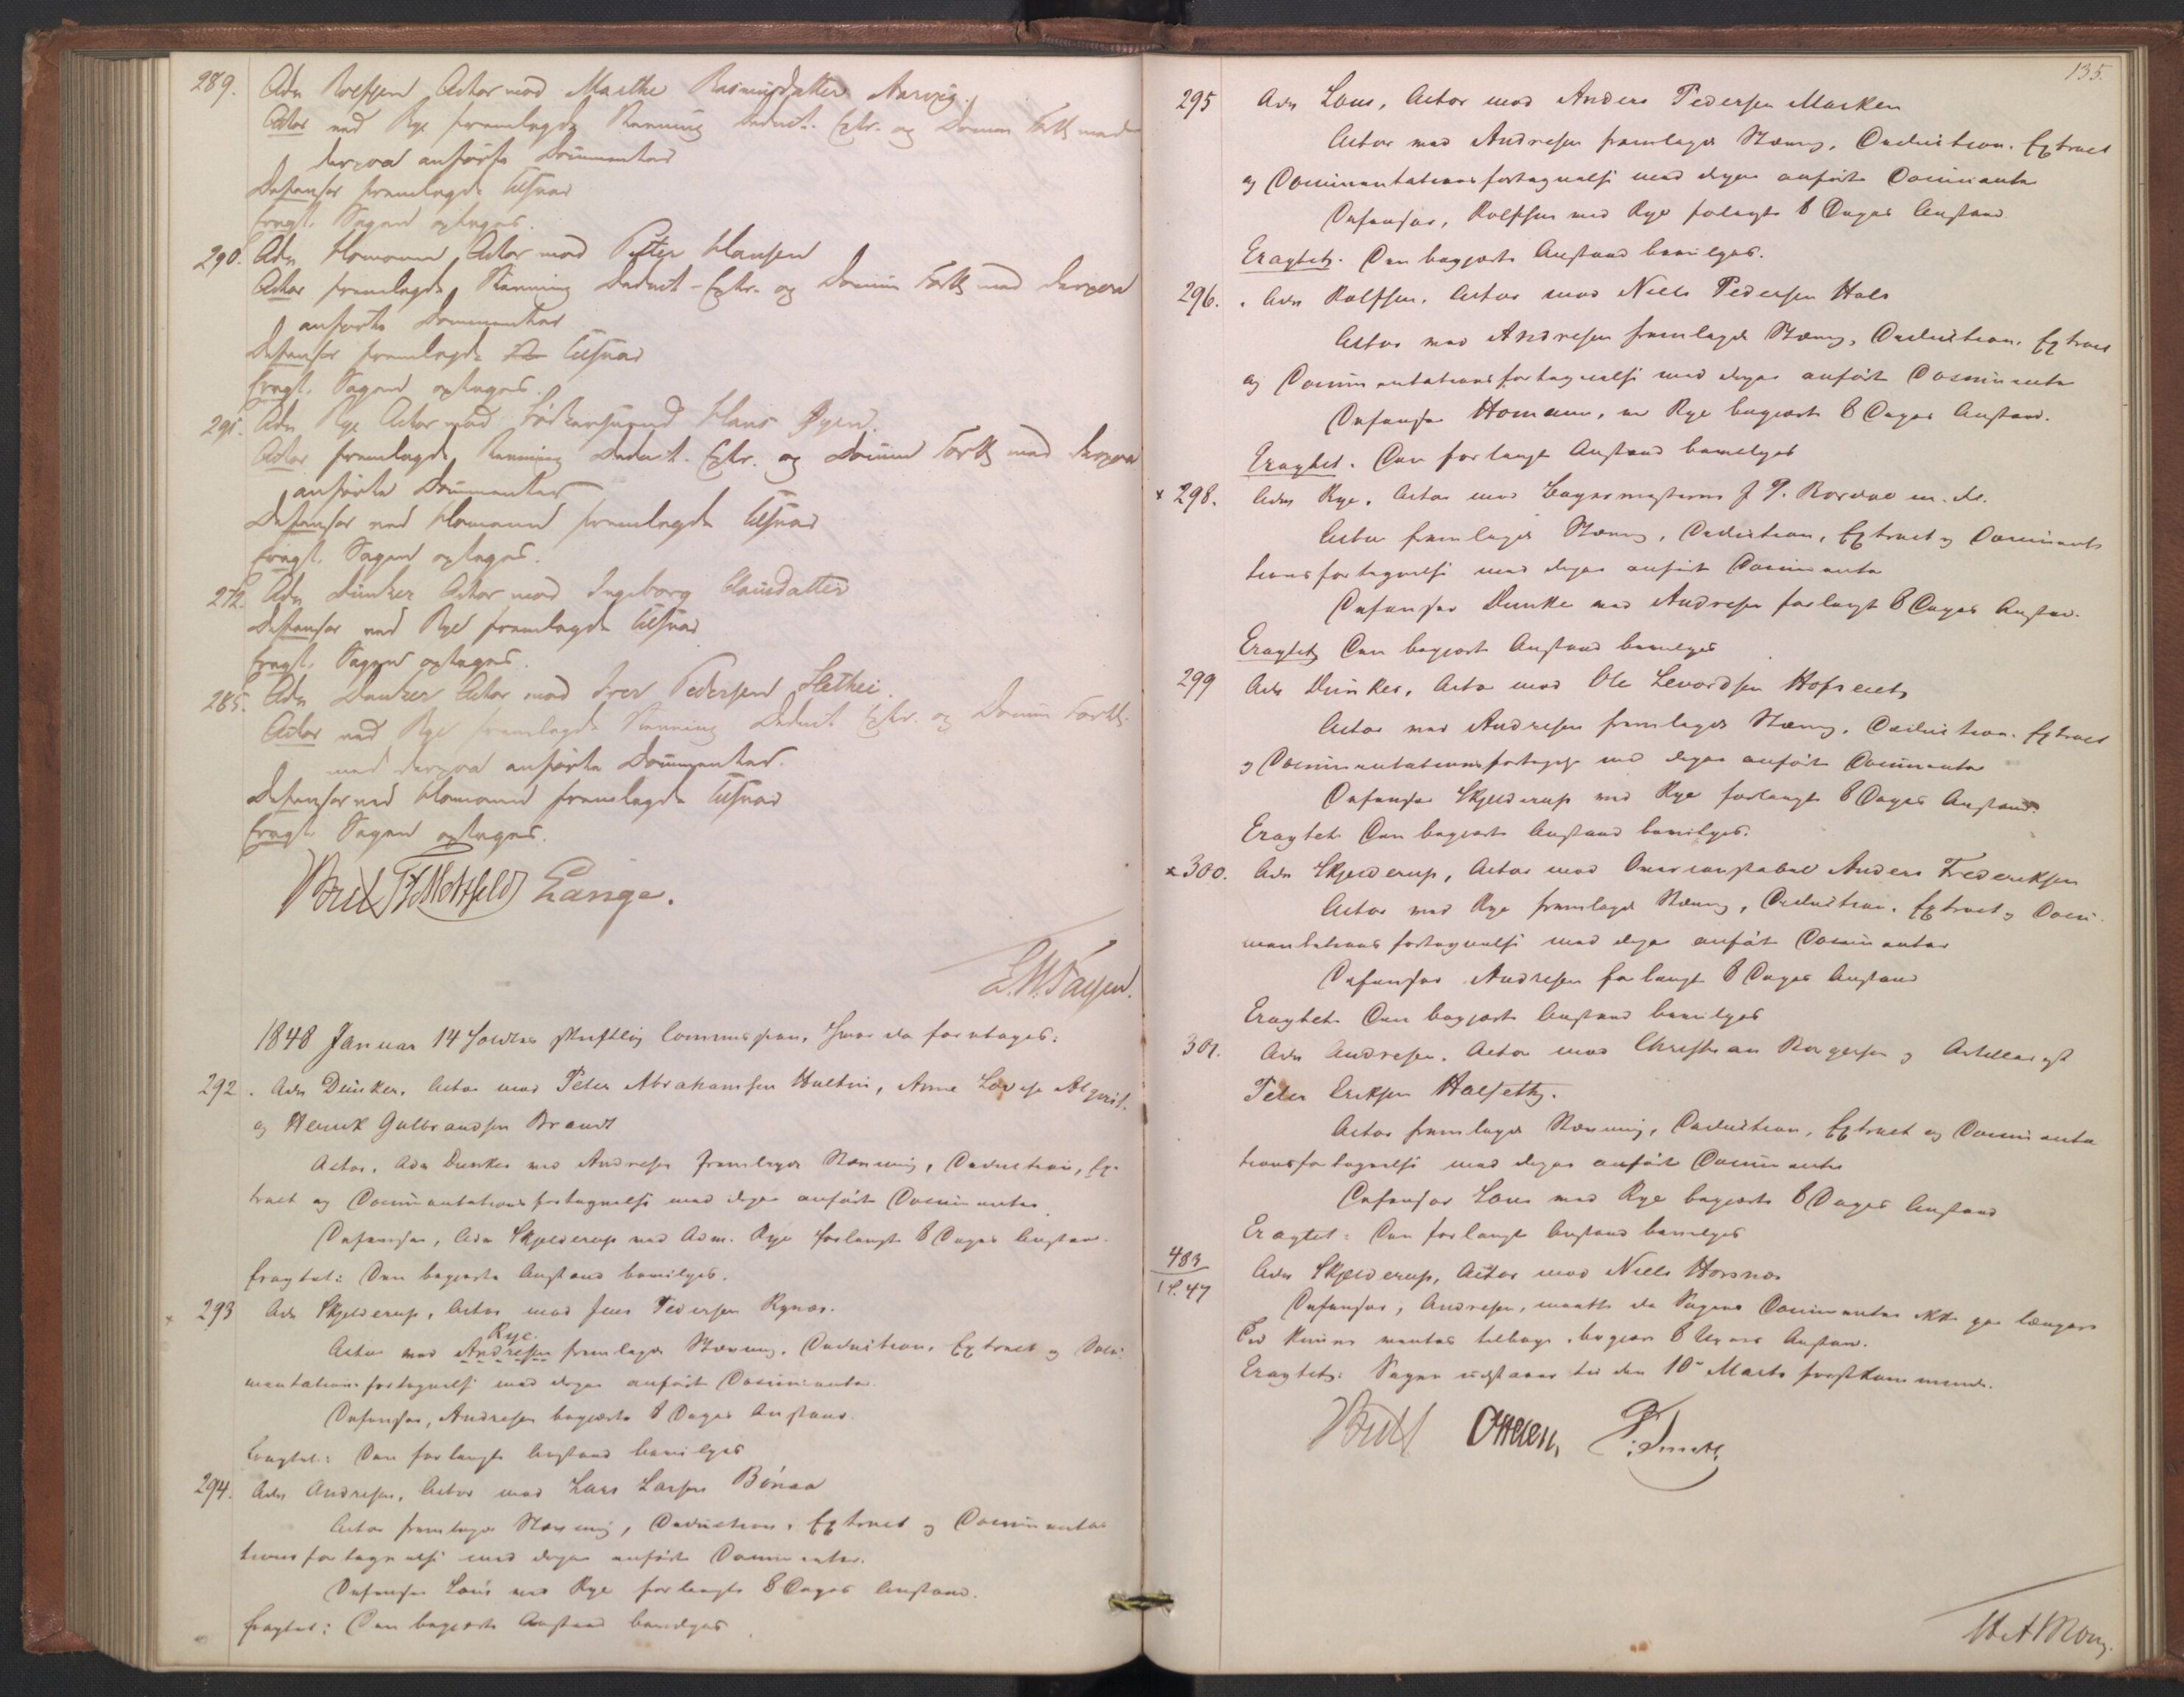 289. Adv Rolfsen Actor mod Marthe Rasmusdatter Aarvig.
Actor ved Rye fremlagde Stevning Deduct. Extr. og Docum Fortg med
derpaa anførte Documenter
Defensor fremlagde Tilsvar
Eragt. Sagen optages.
290. Adv Homann Actor mod Petter Hansen
Actor fremlagde Stevning Deduct. Extr. og Docum Fortg med derpaa
anførte Documenter
Defensor fremlagde Tilsvar
Eragt. Sagen optages.
291. Adv Rye Actor mod Hans Øyen.
Actor fremlagde Stevning Deduct. Extr. og Docum Fortg med derpaa
anførte Documenter
Defensor ved Homann fremlagde Tilsvar
Eragt. Sagen optages.
272. Adv Dunker Actor mod Ingeborg Hansdatter
Defensor ved Rye fremlagde Tilsvar
Eragt. Sagen optages.
285. Adv Dunker Actor mod Iver Pedersen
Actor ved Rye fremlagde Stevning Deduct Extr. og Docum Fortg.
med derpaa anførte Documenter.
Defensor ved Homann fremlagde Tilsvar
Eragt. Sagen optages.
Lange.
1848 Januar 14 holdtes skriftlig Commission, hvor da foretages:
292. Adv Dunker. Actor mod Peter Abrahamsen Hultin, Anne Lovise
og Henrik Gulbrandsen Brandt
Actor, Adv Dunker ved Andresen fremlagde Stevning, Deduction, Ex-
tract og Documentationsfortegnelse med deri anførte Documenter.
Defensor, Adv Skjelderup ved Adv. Rye forlangte 8 Dages Anstand.
Eragtet: Den begjærte Anstand bevilges.
x 293 Adv Skjelderup, Actor mod Jens Pedersen Rynæs.
Rye.
Actor ved Andresen fremlagde Stevning, Deduction, Extract og Docu-
mentationsfortegnelse med deri anførte Documenter.
Defensor, Andresen begjærte 8 Dages Anstand.
Eragtet: Den forlangte Anstand bevilges
294. Adv Andresen, Actor mod Lars Larsen Bønaa
Actor fremlagde Stevning, Deduction, Extract og Documenta
tionsfortegnelse med deri anførte Documenter.
Defensor Lous ved Rye forlangte 8 Dages Anstand.
Eragtet: Den begjærte Anstand bevilges
135.
295 Adv Lous, Actor mod Anders Pedersen Marken
Actor ved Andresen fremlagde Stevng, Deduction, Extract
og Documentationsfortegnelse med deri anførte Documenter
Defensor, Rolfsen ved Rye forlangte 8 Dages Anstand
Eragtet. Den begjærte Anstand bevilges.
296. Adv Rolfsen, Actor mod Niels Pedersen Hals
Actor ved Andresen fremlagde Stevng, Deduction, Extract
og Documentationsfortegnelse med deri anførte Documenter
Defensor Homann, ved Rye begjærte 8 Dages Anstand.
Eragtet. Den forlangte Anstand bevilges
x 298. Adv Rye, Actor mod J. P. m. fl.
Actor fremlagde Stevng, Deduction, Extract og Documenta
tionsfortegnelse med deri anførte Documenter
Defensor Dunker ved Andresen forlangte 8 Dages Anstand.
Eragtet Den begjærte Anstand bevilges
299 Adv Dunker, Actor mod Ole Levordsen
Actor ved Andresen fremlagde Stevng, Deduction, Extract
og Documentationsfortegnelse med deri anførte Documenter
Defensor Skjelderup ved Rye forlangte 8 Dages Anstand.
Eragtet Den begjærte Anstand bevilges.
x 300. Adv Skjelderup, Actor mod Overconstabel Anders Frederiksen
Actor ved Rye fremlagde Stevng, Deduction, Extract og Docu-
mentationsfortegnelse med deri anførte Documenter
Defensor Andresen forlangte 8 Dages Anstand
Eragtet Den begjærte Anstand bevilges
301. Adv Andresen, Actor mod Christian Borgersen og Artillerist
Peter Eriksen Halsetty.
Actor fremlagde Stevning, Deduction, Extract og Documenta
tionsfortegnelse med deri anførte Documenter
Defensor Lous ved Rye begjærte 8 Dages Anstand
Eragtet: Den forlangte Anstand bevilges
483
1847 Adv Skjelderup, Actor mod Niels Horsnæs
Defensor, Andresen, maatte da Sagens Documenter ikke
kunne ventes tilbage, begjære 8 Ugers Anstand.
Eragtet: Sagen udstaaer til den 10de Marts førstkommende.